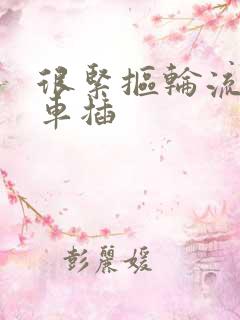 很緊摳輪流
車插
彭麗媛